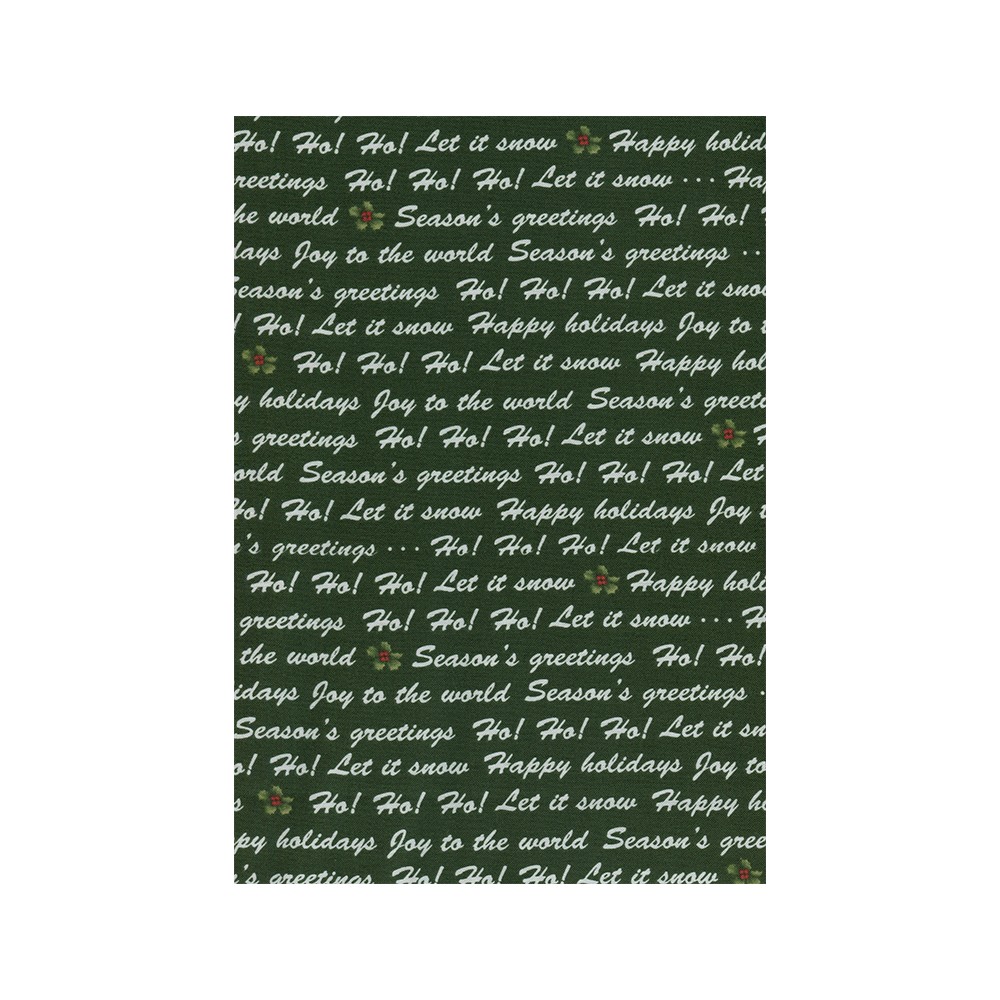 Ho! Ho! Ho! Let it snow Happy holid
reetings Ho! Ho! Ho! Let it snow ··· Hap
he world Season's greetings Ho! Ho!
days Joy to the world Season's greetings ··
Season's greetings Ho! Ho! Ho! Let it sno
! Ho! Let it snow Happy holidays Joy to t
Ho! Ho! Ho! Let it snow Happy hol
y holidays Joy to the world Season's greeti
s greetings Ho! Ho! Ho! Let it snow H
orld Season's greetings Ho! Ho! Ho! Let
Ho! Ho! Let it snow Happy holidays Joy t
n's greetings ··· Ho! Ho! Ho! Let it snow
Ho! Ho! Ho! Let it snow Happy holi
greetings Ho! Ho! Ho! Let it snow ··· H
the world Season's greetings Ho! Ho!
idays Joy to the world Season's greetings ·
Season's greetings Ho! Ho! Ho! Let it sn
o! Ho! Let it snow Happy holidays Joy to
s Ho! Ho! Ho! Let it snow Happy ho
py holidays Joy to the world Season's gree
's greetings Ho! Ho! Ho! Let it snow